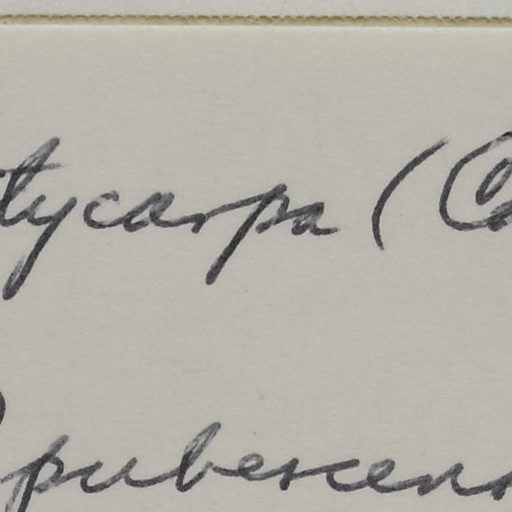 tycarpa (C
pubescens